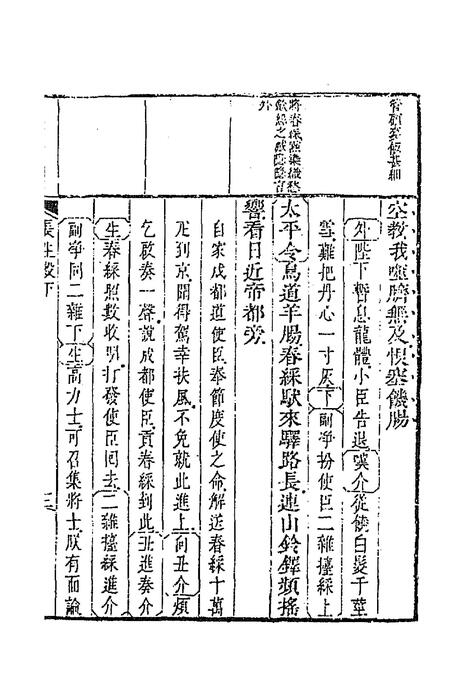 管顧蔡飯甚細
空教我噬臍無及恨塞饑腸
外陛下暫息龍體小臣告退嘆介從饒白髮千莖
雪難把丹心一寸灰下副淨扮使臣二雜擡綵上
將春綵點染幽愁
外
太平令鳥道羊腸春綵馱來驛路長連山鈴鐸頻搖
響看日近帝都旁
自家成都道使臣奉節度使之命解送春綵十萬
疋到京聞得駕幸扶風不免就此進上向丑介煩
乞啟奏一聲說成都使臣貢春綵到此丑進奏介
生春綵照數收明打發使臣回去二雜擡綵進介
副淨同二雜下生高力士可召集將士朕有面諭
長生殿下